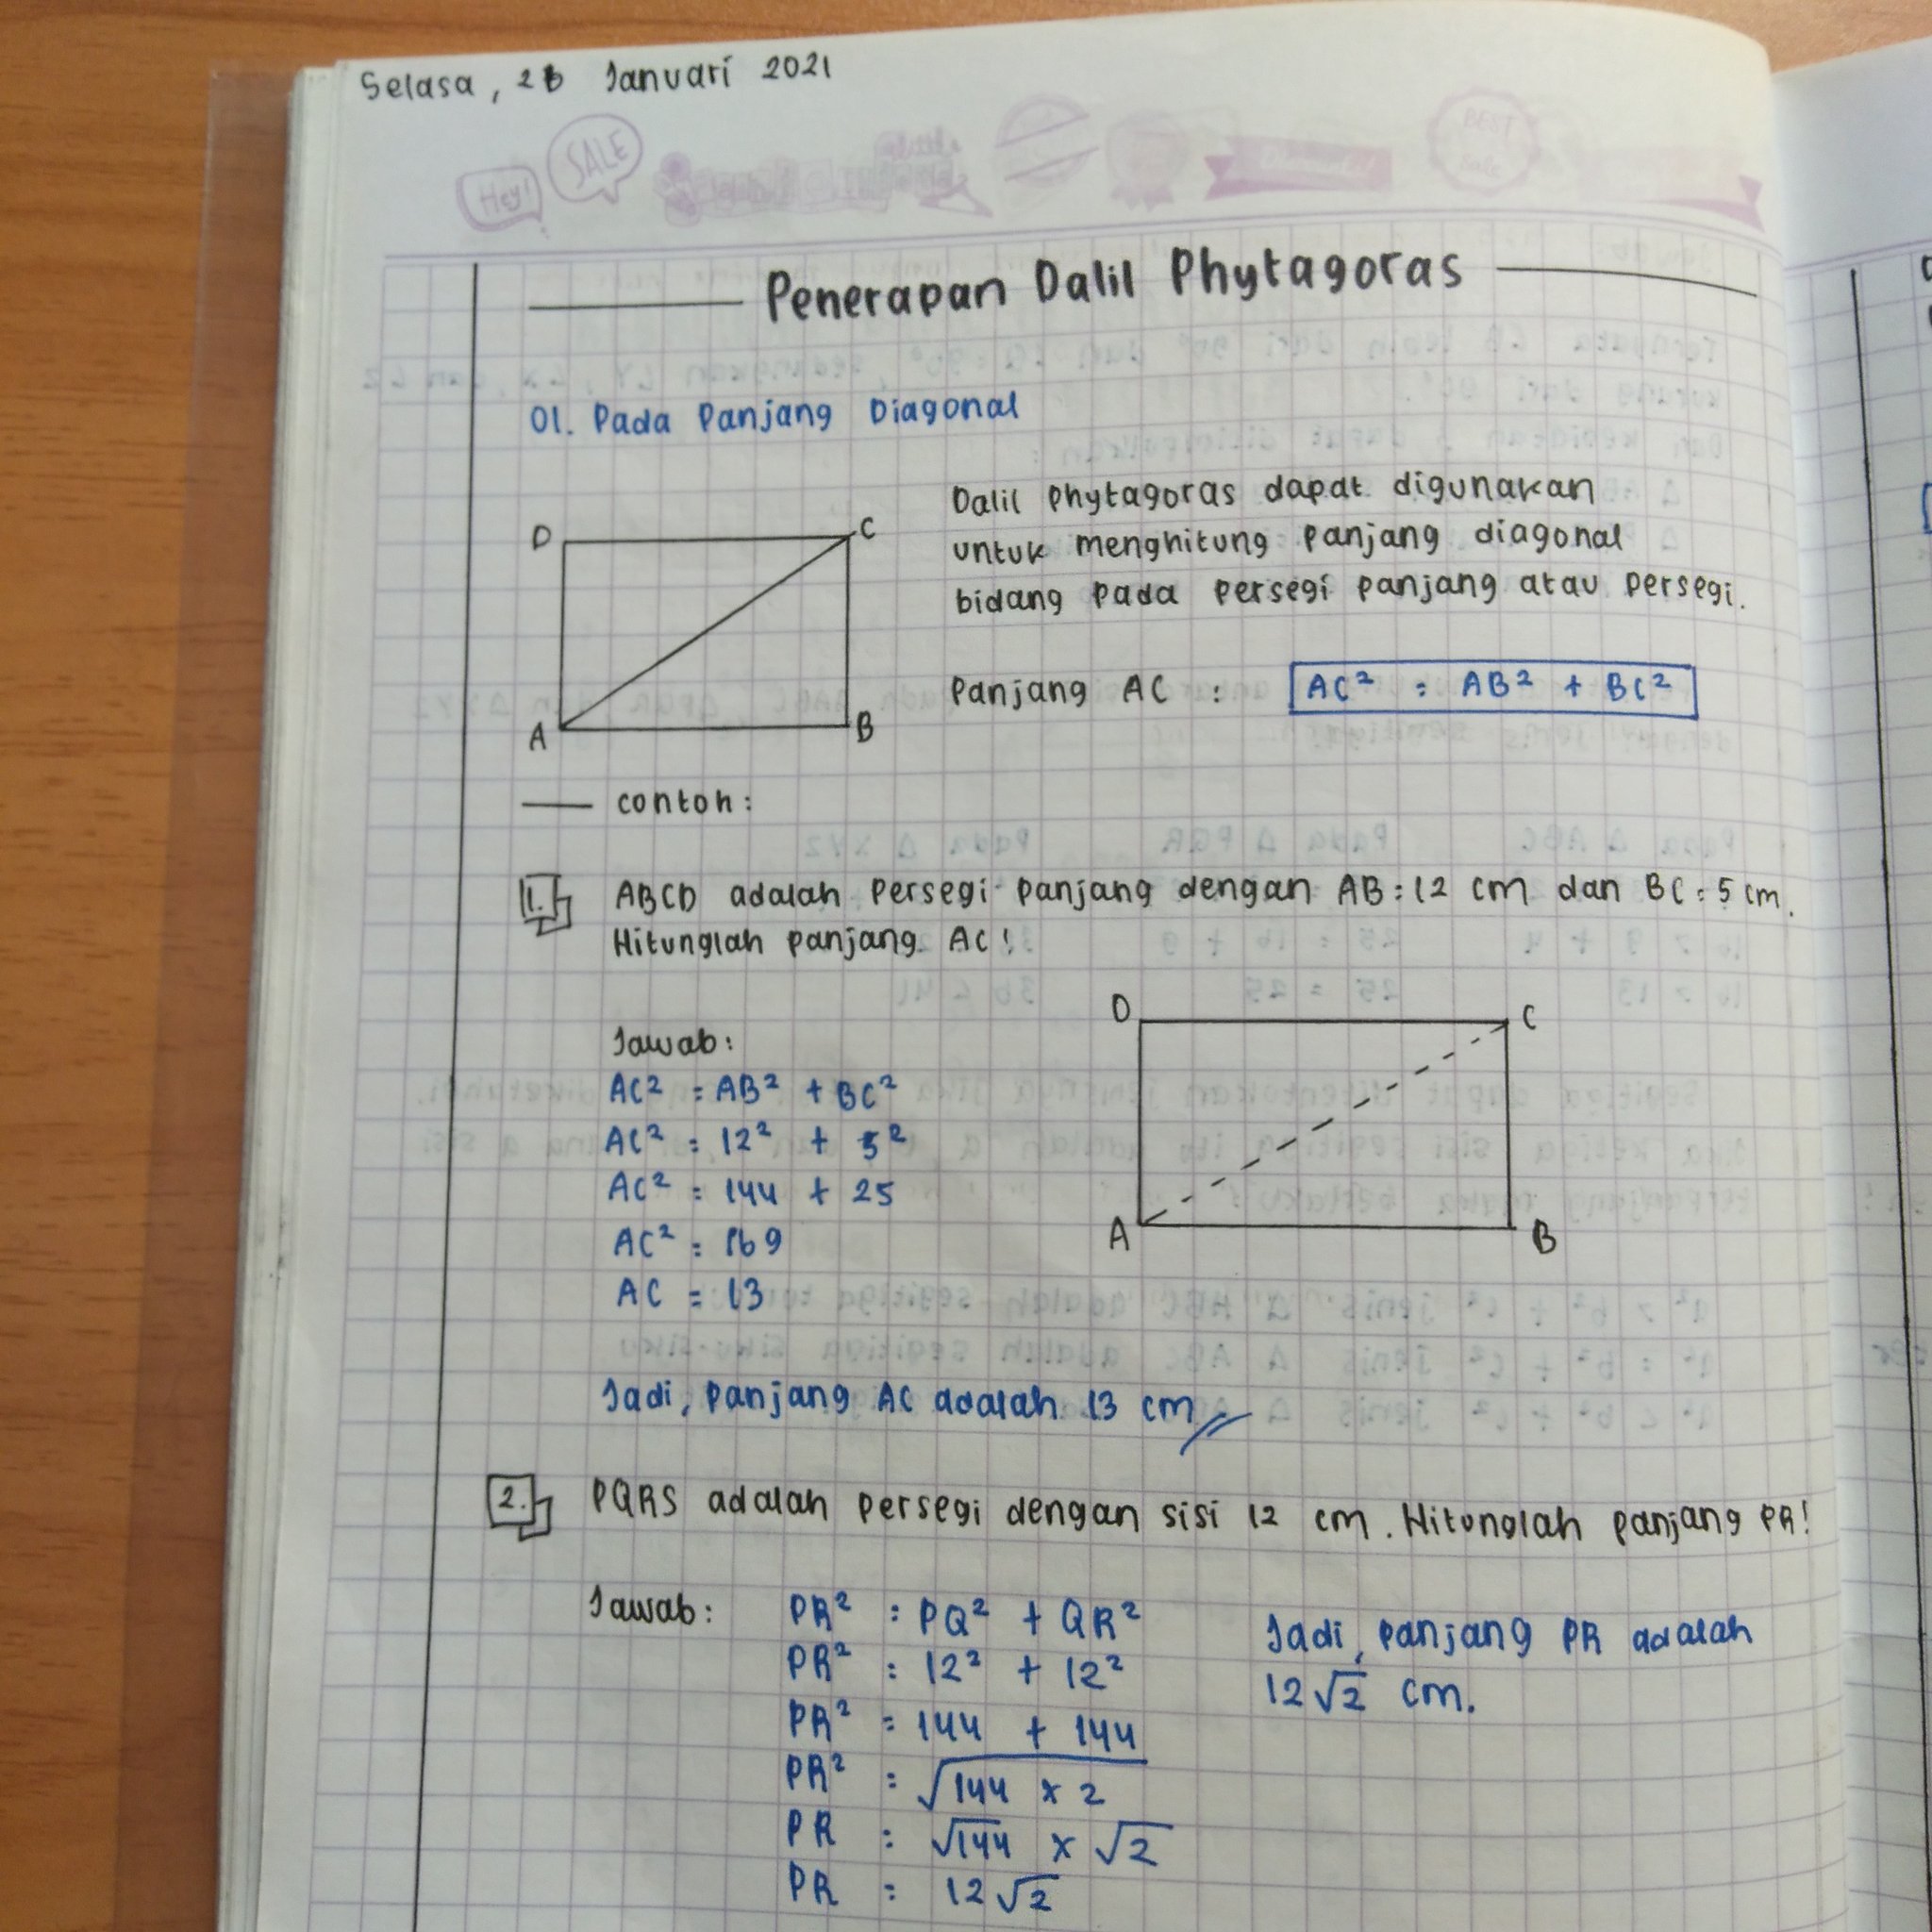 Selasa, 26 Januari 2021
Hey!
SALE
BEST
Sale
Penerapan Dalil Phytagoras
01. Pada Panjang Diagonal
Dalil Phytagoras dapat digunakan
untuk menghitung panjang diagonal
bidang pada persegi panjang atau persegi.
D C
A B
Panjang AC : AC² = AB² + BC²
contoh:
1. ABCD adalah persegi panjang dengan AB = 12 cm dan BC = 5 cm.
Hitunglah panjang AC!
D C
A B
Jawab:
AC² = AB² + BC²
AC² = 12² + 5²
AC² = 144 + 25
AC² = 169
AC = 13
Jadi, panjang AC adalah 13 cm
2. PQRS adalah persegi dengan sisi 12 cm. Hitunglah panjang PR!
Jawab:
PR² = PQ² + QR²
PR² = 12² + 12²
PR² = 144 + 144
PR² = √144 x 2
PR = √144 x √2
PR = 12√2
Jadi, panjang PR adalah
12√2 cm.